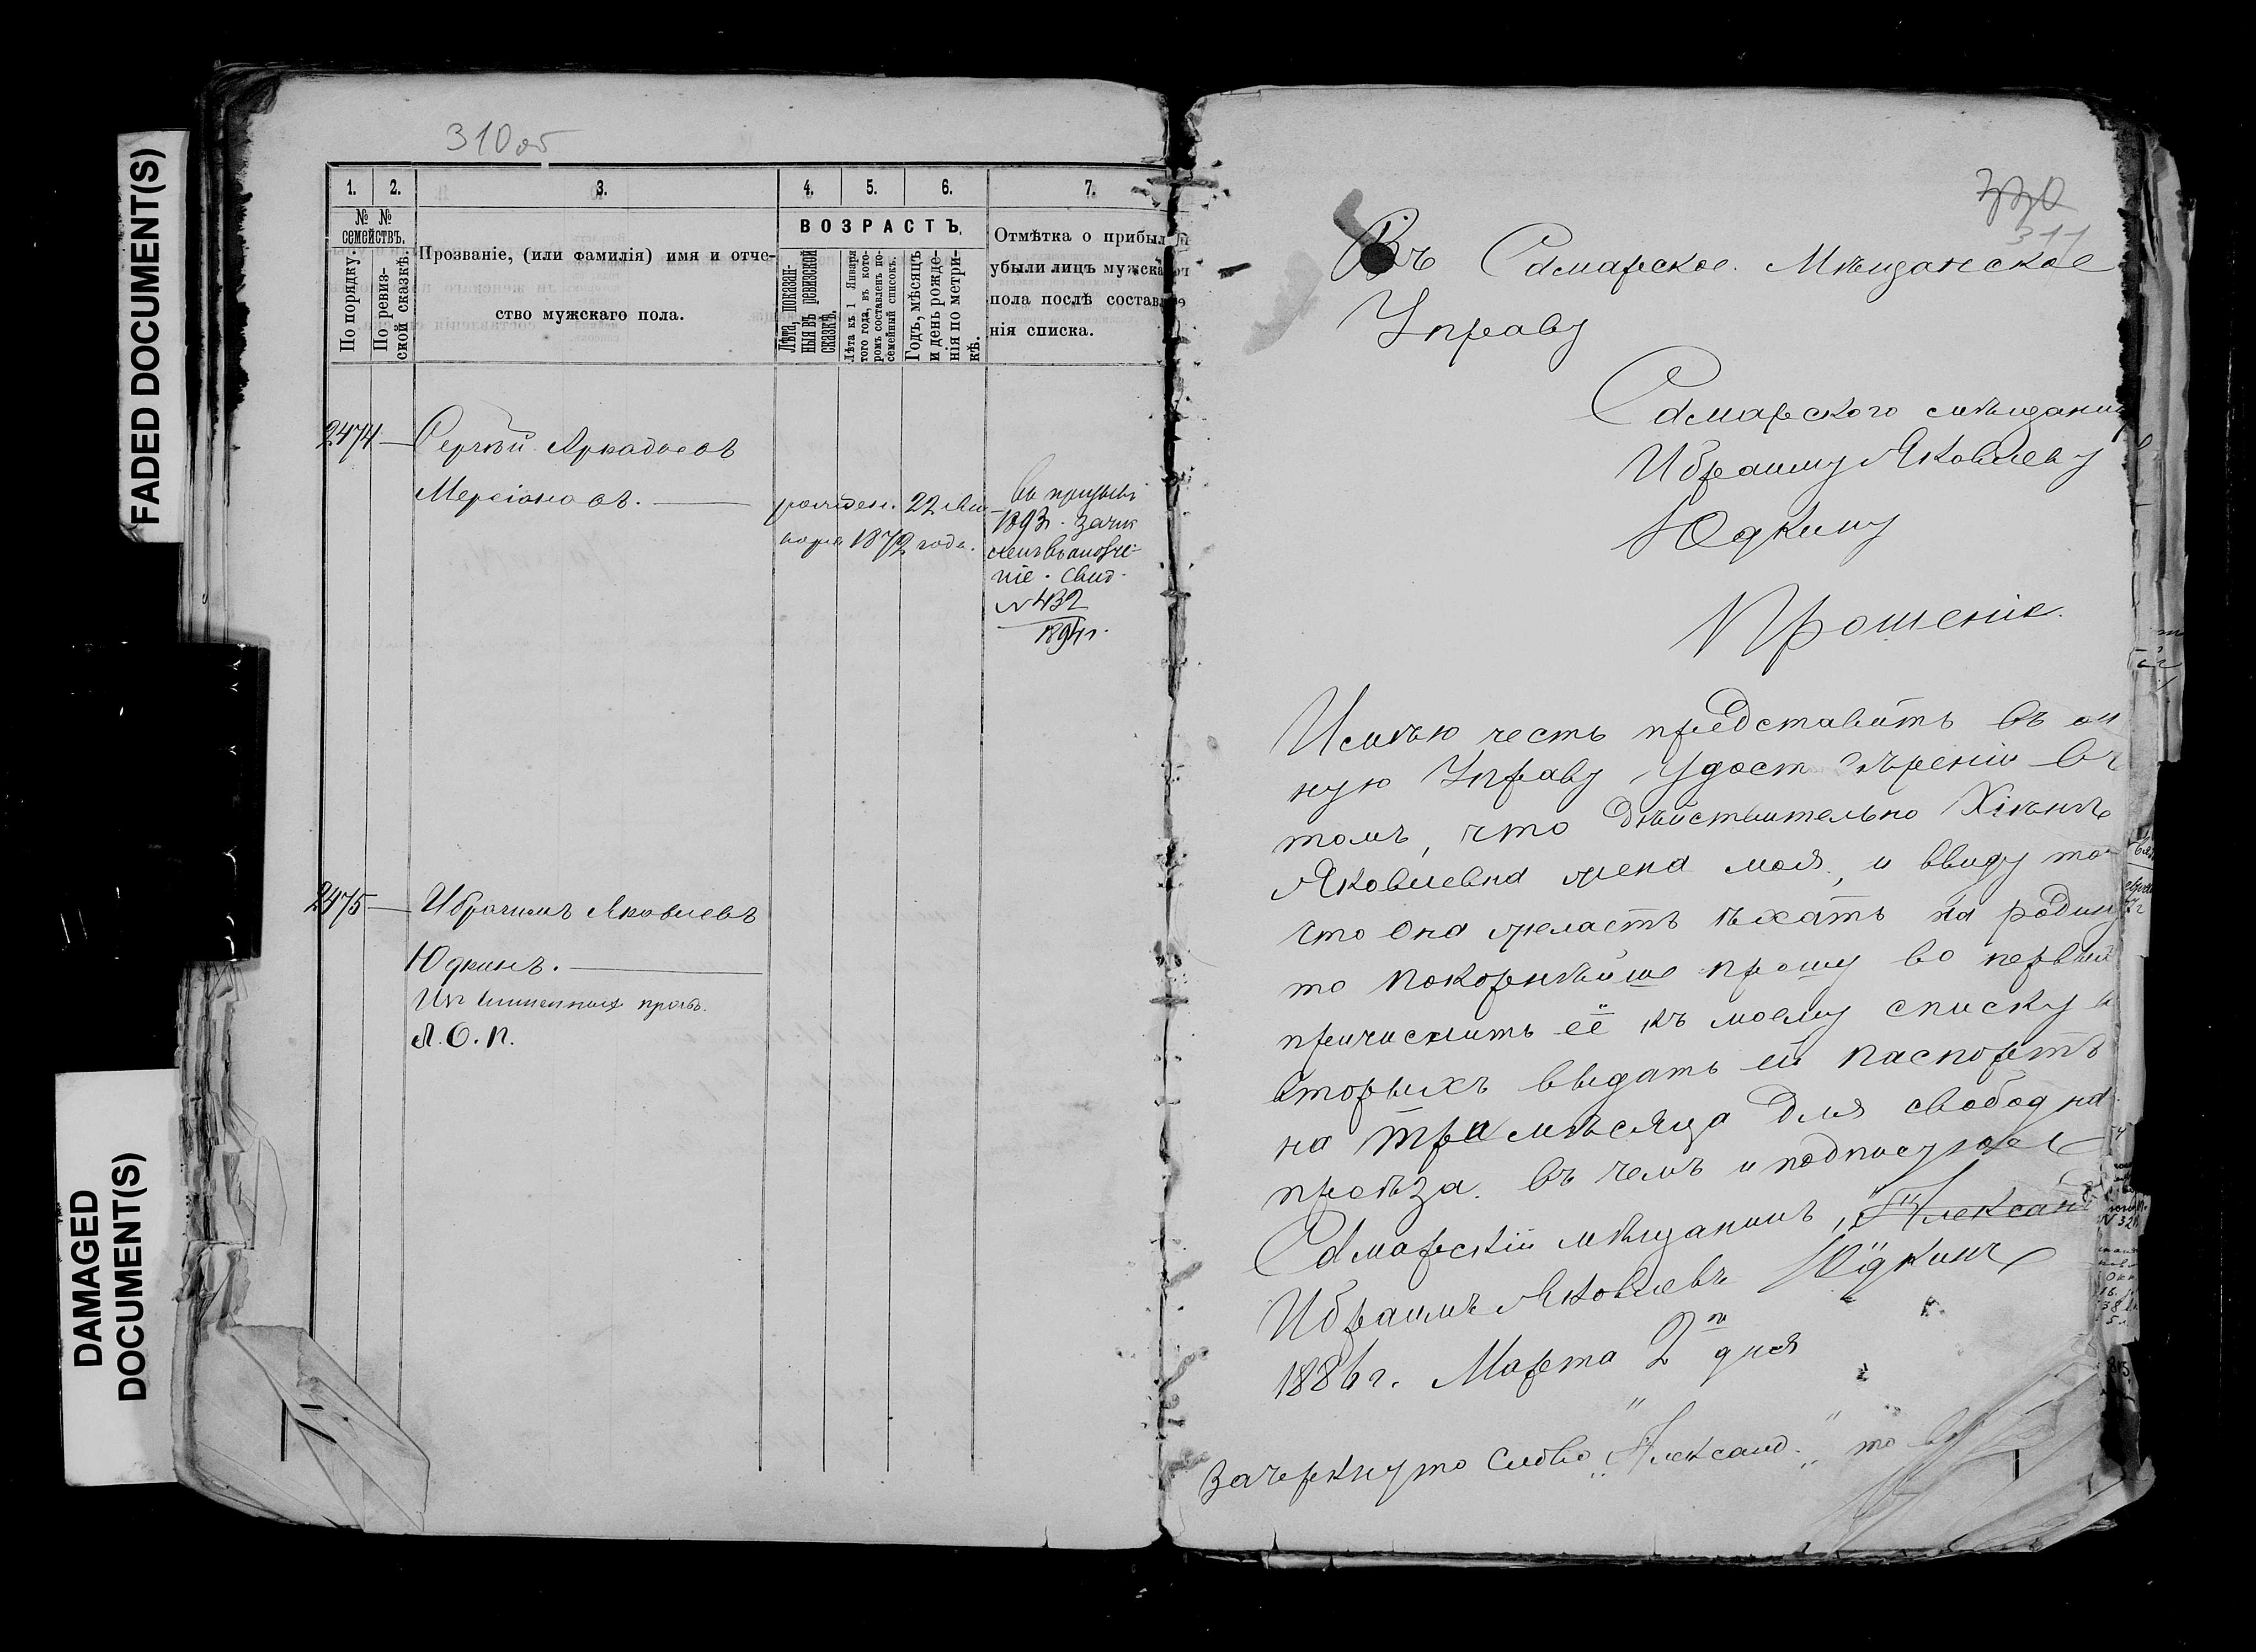 FADED DOCUMENT(S)
DAMAGED
DOCUMENT(S)
310 об
1. 2. 3. 4. 5. 6. 7.
№ №
семействъ.
По порядку.
По ревиз-
ской сказкѣ.
Прозваніе, (или фамилія) имя и отче-
ство мужскаго пола.
ВОЗРАСТЪ.
Лѣта, показан-
ныя въ ревизской
сказкѣ.
Лѣта къ 1 Января
того года, въ кото-
ромъ составленъ по-
семейный списокъ.
Годъ, мѣсяцъ
и день рожде-
нія по метри-
кѣ.
Отмѣтка о прибыл
убыли лицъ мужска
пола послѣ составле
нія списка.
2474 — Сергѣй Аркадьевъ
Мерсіановъ. —
рожден. 22 Ян-
варя 1872 года.
въ призывъ
1893 г. зачи
сленъ въ ополче-
ніе. Свид.
№ 432
1894 г.
2475 — Ибрагимъ Яковлевъ
Юдкинъ. —
Из лишенныхъ правъ.
Л. О. П.
330
311
Въ Самарское Мѣщанское
Управу
Самарского мѣщанин
Ибраиму Яковлеву
Юдкину
Прошеніе.
Имѣю честь представить въ он
ную Управу Удостовѣреніи въ
томъ, что дѣйствительно
Яковлевна жена моя, и ввиду то
что она желаетъ ѣхать на родину
то покорнѣйше прошу во первый
причислить её къ моему списку и
вторыхъ выдать ей паспортъ
на три мѣсяца для свободна
проѣзда. Въ чемъ и подписуюсь
Самарскій мѣщанинъ, Алексан
Ибраимъ Яковлевъ Юдкинъ
1886 г. Марта 2 го дня
Зачеркнуто слово „Александ." то